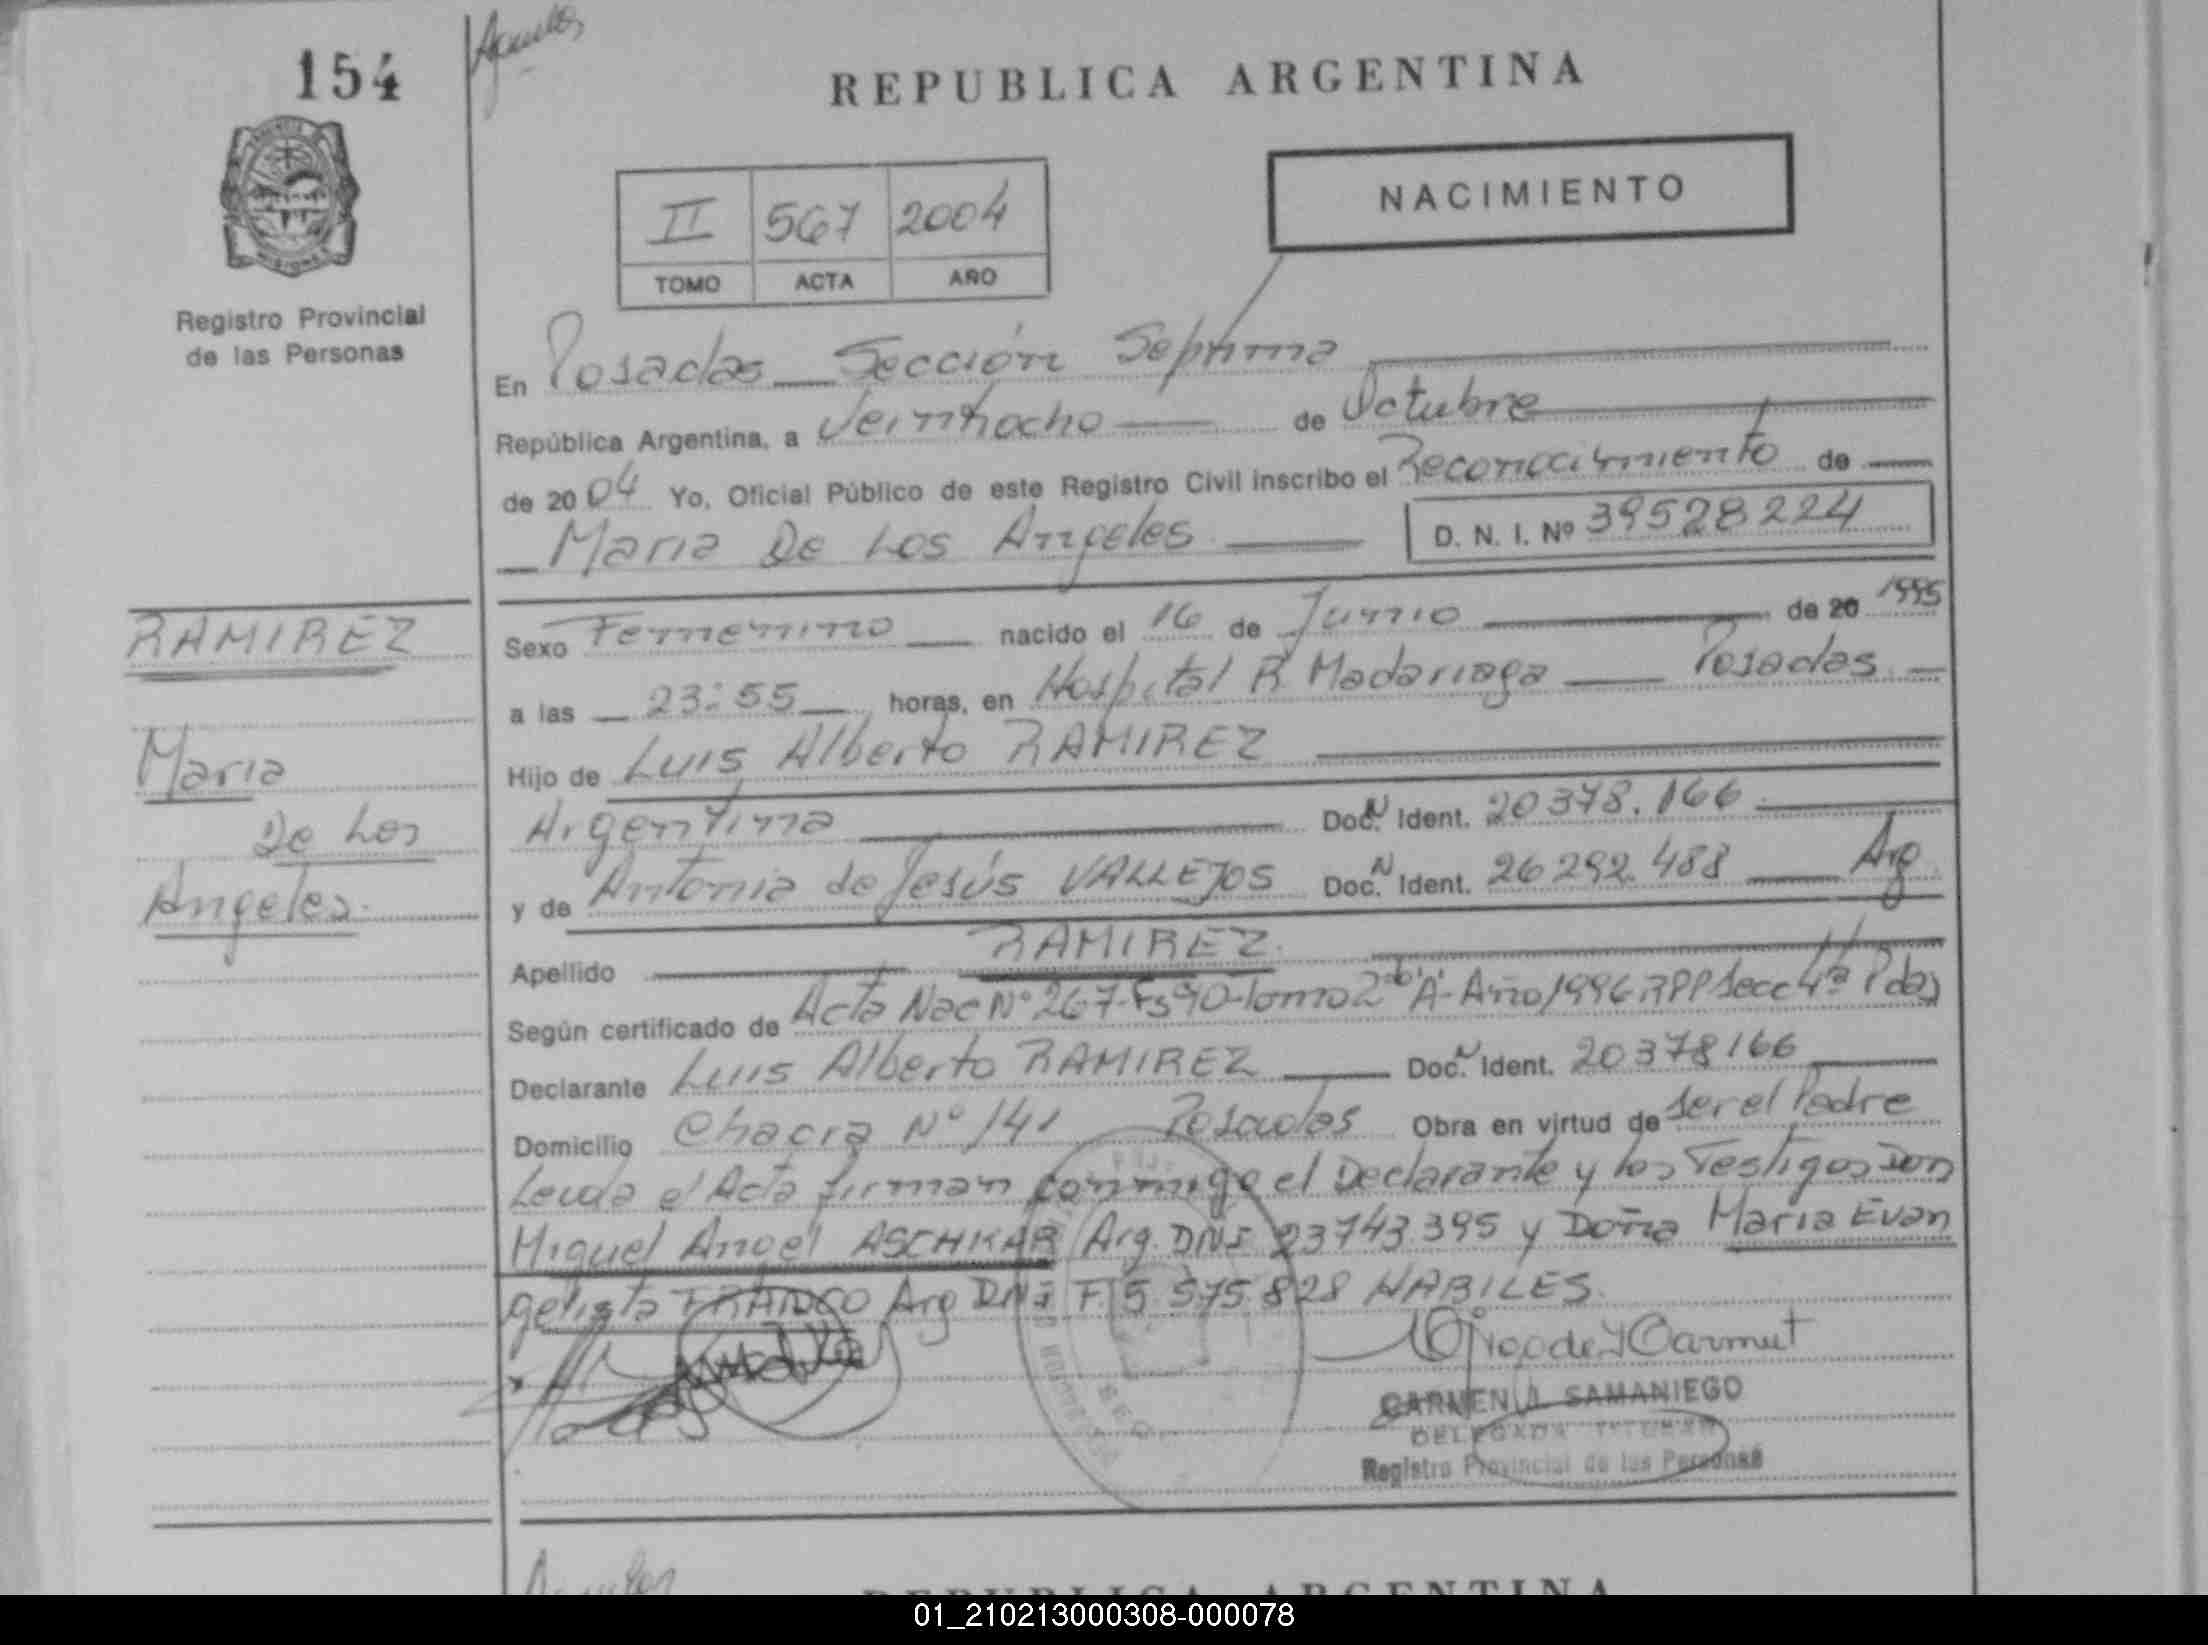 154
REPUBLICA ARGENTINA
NACIMIENTO
II 567 2004
TOMO ACTA AÑO
Registro Provincial
de las Personas
MISIONES
En Posadas Sección Septima
República Argentina, a Veintiocho de Octubre
de 20 04 Yo, Oficial Público de este Registro Civil inscribo el Reconocimiento de
Maria De Los Angeles
D. N. I. Nº 39528224
RAMIREZ
Maria
De Los
Angeles
Sexo Femenino nacido el 16 de Junio de 20 1995
a las 23:55 horas, en Hospital R. Madariaga Posadas
Hijo de Luis Alberto RAMIREZ
Argentina Doc. N Ident. 20378.166
y de Antonia de Jesús VALLEJOS Doc. N Ident. 26292.488 Arg
Apellido RAMIREZ
Según certificado de Acta Nac Nº 267-Fs90-Tomo 2do "A"-Año 1996 RPP Secc 4ª Pdas
Declarante Luis Alberto RAMIREZ Doc. N Ident. 20378166
Domicilio Chacra Nº 141 Posadas Obra en virtud de ser el Padre
Leida el Acta firman conmigo el Declarante y los Testigos Don
Miguel Angel ASCHKAR Arg. DNI 23743.395 y Doña Maria Evan
gelista FRANCO Arg DNI F 5 575.828 HABILES.
CARMEN SAMANIEGO
DELEGADA TITULAR
Registro Provincial de las Personas
REPUBLICA ARGENTINA
01_210213000308-000078